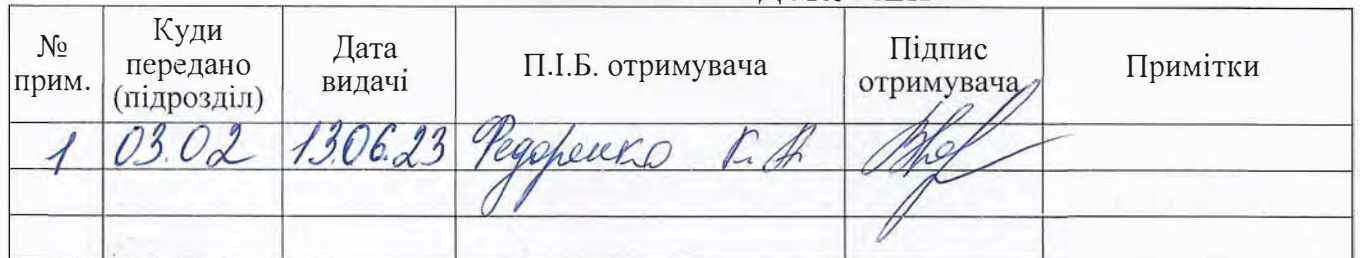 № прим. Куди передано (підрозділ) Дата видачі П.І.Б. отримувача Підпис отримувача Примітки
1 03.02 13.06.23 Федоренко К. А